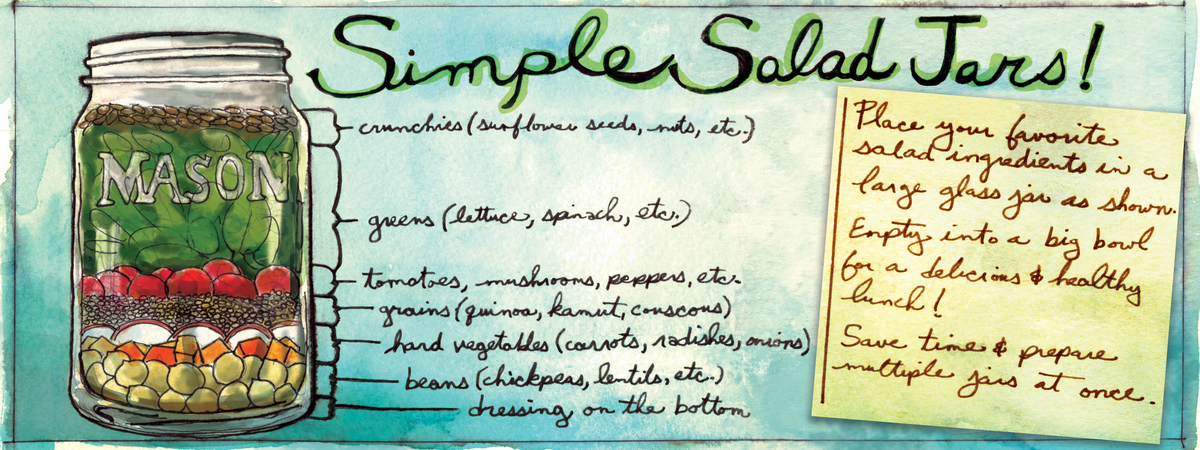 Simple Salad Jars!
MASON
crunchies (sunflower seeds, nuts, etc.)
greens (lettuce, spinach, etc.)
tomatoes, mushrooms, peppers, etc.
grains (quinoa, kamut, couscous)
hard vegetables (carrots, radishes, onions)
beans (chickpeas, lentils, etc.)
dressing on the bottom
Place your favorite
salad ingredients in a
large glass jar as shown.
Empty into a big bowl
for a delicious & healthy
lunch!
Save time & prepare
multiple jars at once.